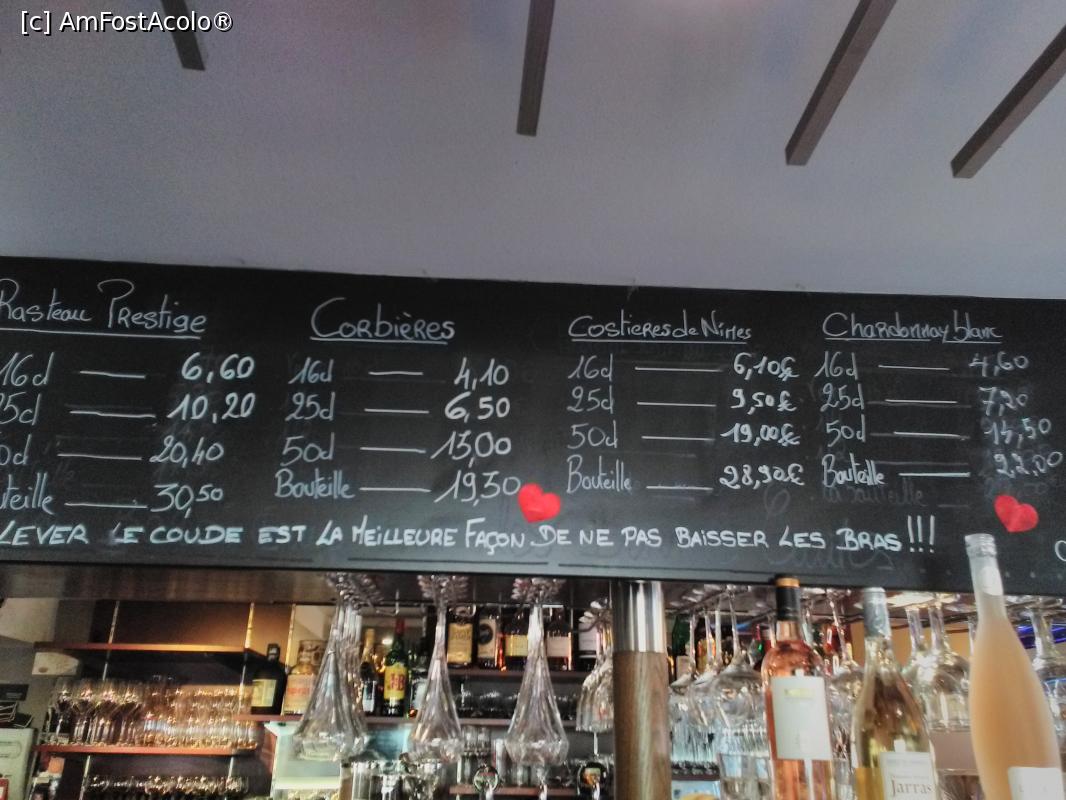 [c] AmFostAcolo®
Rasteau Prestige
16d 6,60
25d 10,20
50d 20,40
Bouteille 30,50
Corbières
16d 4,10
25d 6,50
50d 13,00
Bouteille 19,30
Costieres de Nimes
16d 6,10€
25d 9,50€
50d 19,00€
Bouteille 28,90€
Chardonnay blanc
16d 4,60
25d 7,20
50d 14,50
Bouteille 22,00
LEVER LE COUDE EST LA MEILLEURE FAÇON DE NE PAS BAISSER LES BRAS!!!
J&B
Jarras